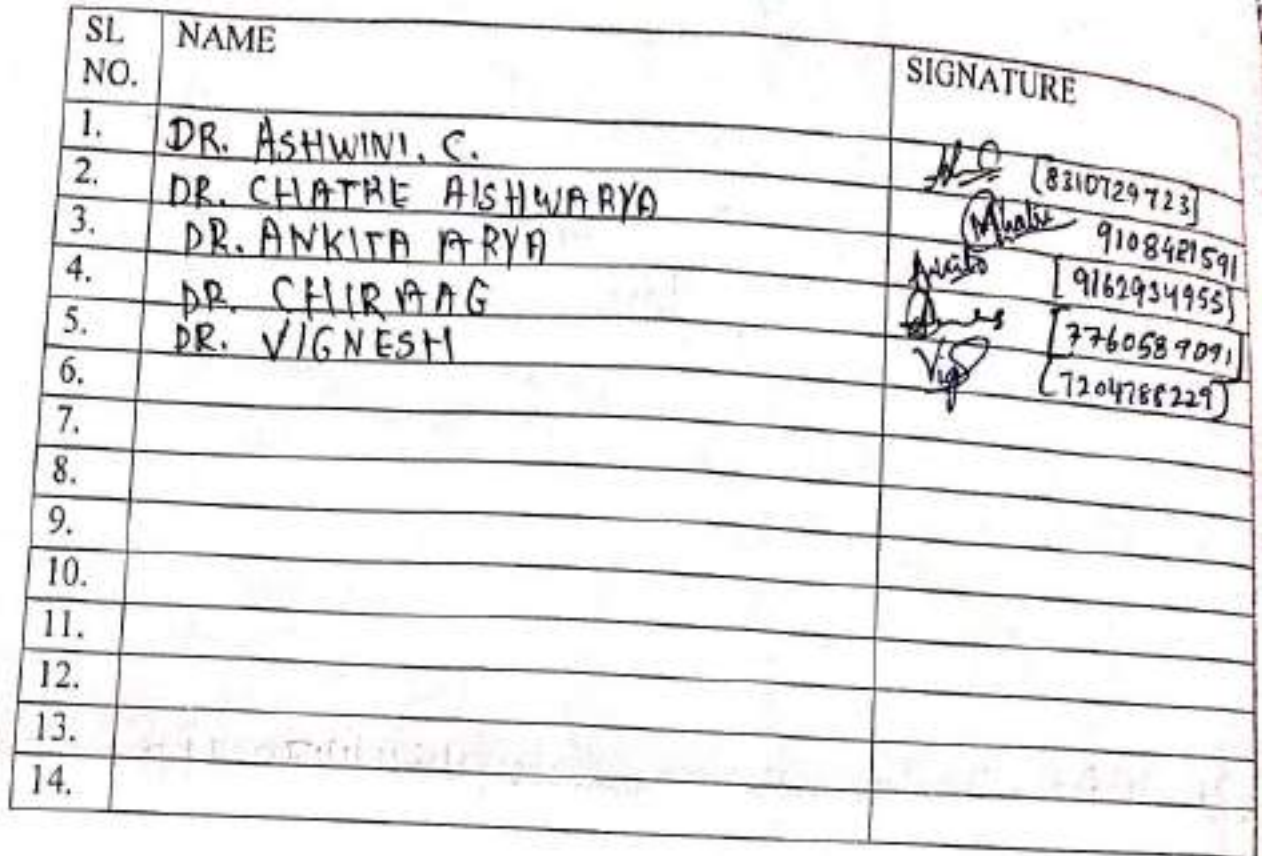 SL NO. NAME SIGNATURE
1. DR. ASHWINI. C. [8310729723]
2. DR. CHATRE AISHWARYA 9108421591
3. DR. ANKITA ARYA [9162934955]
4. DR. CHIRAAG [7760589091]
5. DR. VIGNESH [7204788229]
6.
7.
8.
9.
10.
11.
12.
13.
14.